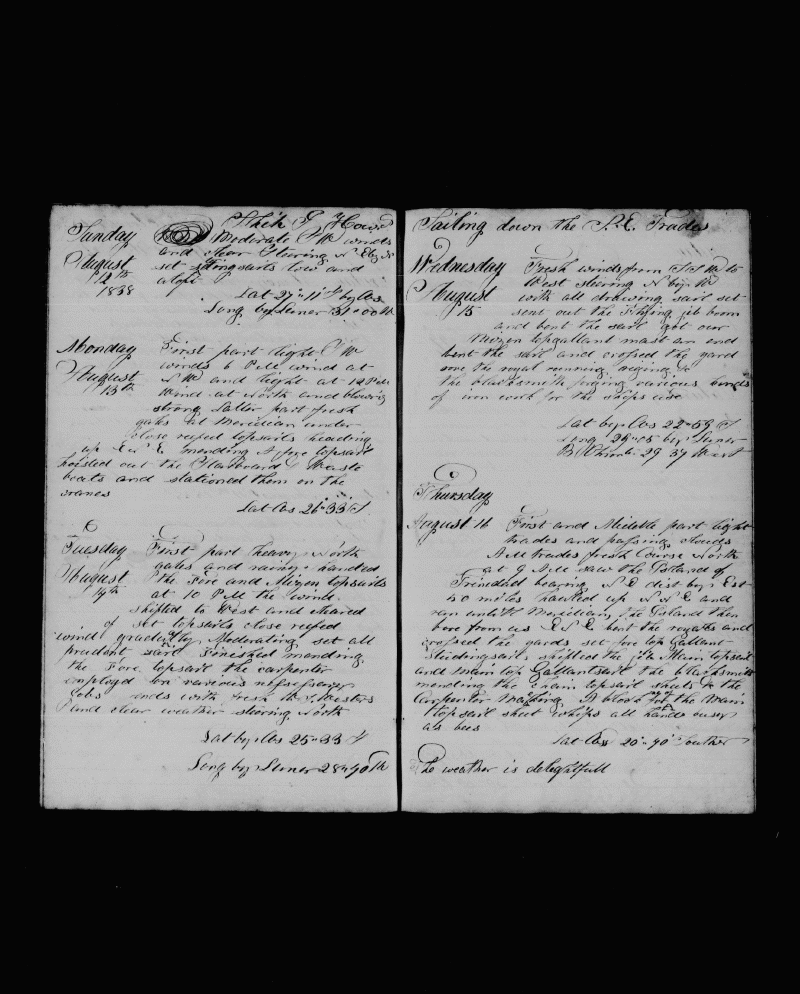 Ship J Howd
Sunday Moderate S W winds
August and clear Stearing N E by N
12th set Stdingsails low and
1838 aloft
Lat 27" 11' S by Obs
Long by Luner 31" 00 W
Monday First part light S W
August winds 6 P.M. wind at
13th N W and light at 12 P.M.
Wind at North and blowing
strong Latter part fresh
gales at Meridian under
close reefed topsails heading
up E N E mending A fore topsail
hoisted out the Starboard Waste
boats and stationed them on the
cranes
Lat Obs 26" 33' S
Tuesday First part heavy North
August gales and rainy handed
14th the Fore and Mizen topsails
at 10 P.M the wind
shifted to West and cleared
of set topsails close reefed
wind gradually Moderating set all
prudent sail Finished mending
the Fore topsail the carpenter
employd on various nessessary
Jobs ends with fresh W S Westers
and clear weather stearing North
Lat by Obs 25" 33 S
Long by Luner 28" 40 W
Sailing down the S.E. Trades
Wednesday Fresh winds from S S W to
August West stearing N by W
15 with all drawing sail set
sent out the Flying jib boom
and bent the sail got our
Mizen topgallant mast an end
bent the sail and crossed the yard
rove the royal running riging &c
the blacksmith forging various kinds
of iron work for the ships use
Lat by Obs 22" 59 S
Long 29" 05 by Luner
By Chron 29 37 West
Thursday
August 16 First and Middle part light
trades and passing clouds
A.M trades fresh Course North
at 9 A.M saw the Island of
Trinidad bearing N E dist by Est
40 miles hauled up N N E and
ran untill Meridian, the Island then
bore from us E N E bent the royals and
crossed the yards set for top Gallant
Studingsails shifted the jib Main topsail
and Main top Gallantsail the blacksmith
mending the chain topsail sheets &c the
Carpenter Making A block for the Main
topsail sheet whips all hands busy
as bees
Lat Obs 20" 40' South
The weather is delightfull